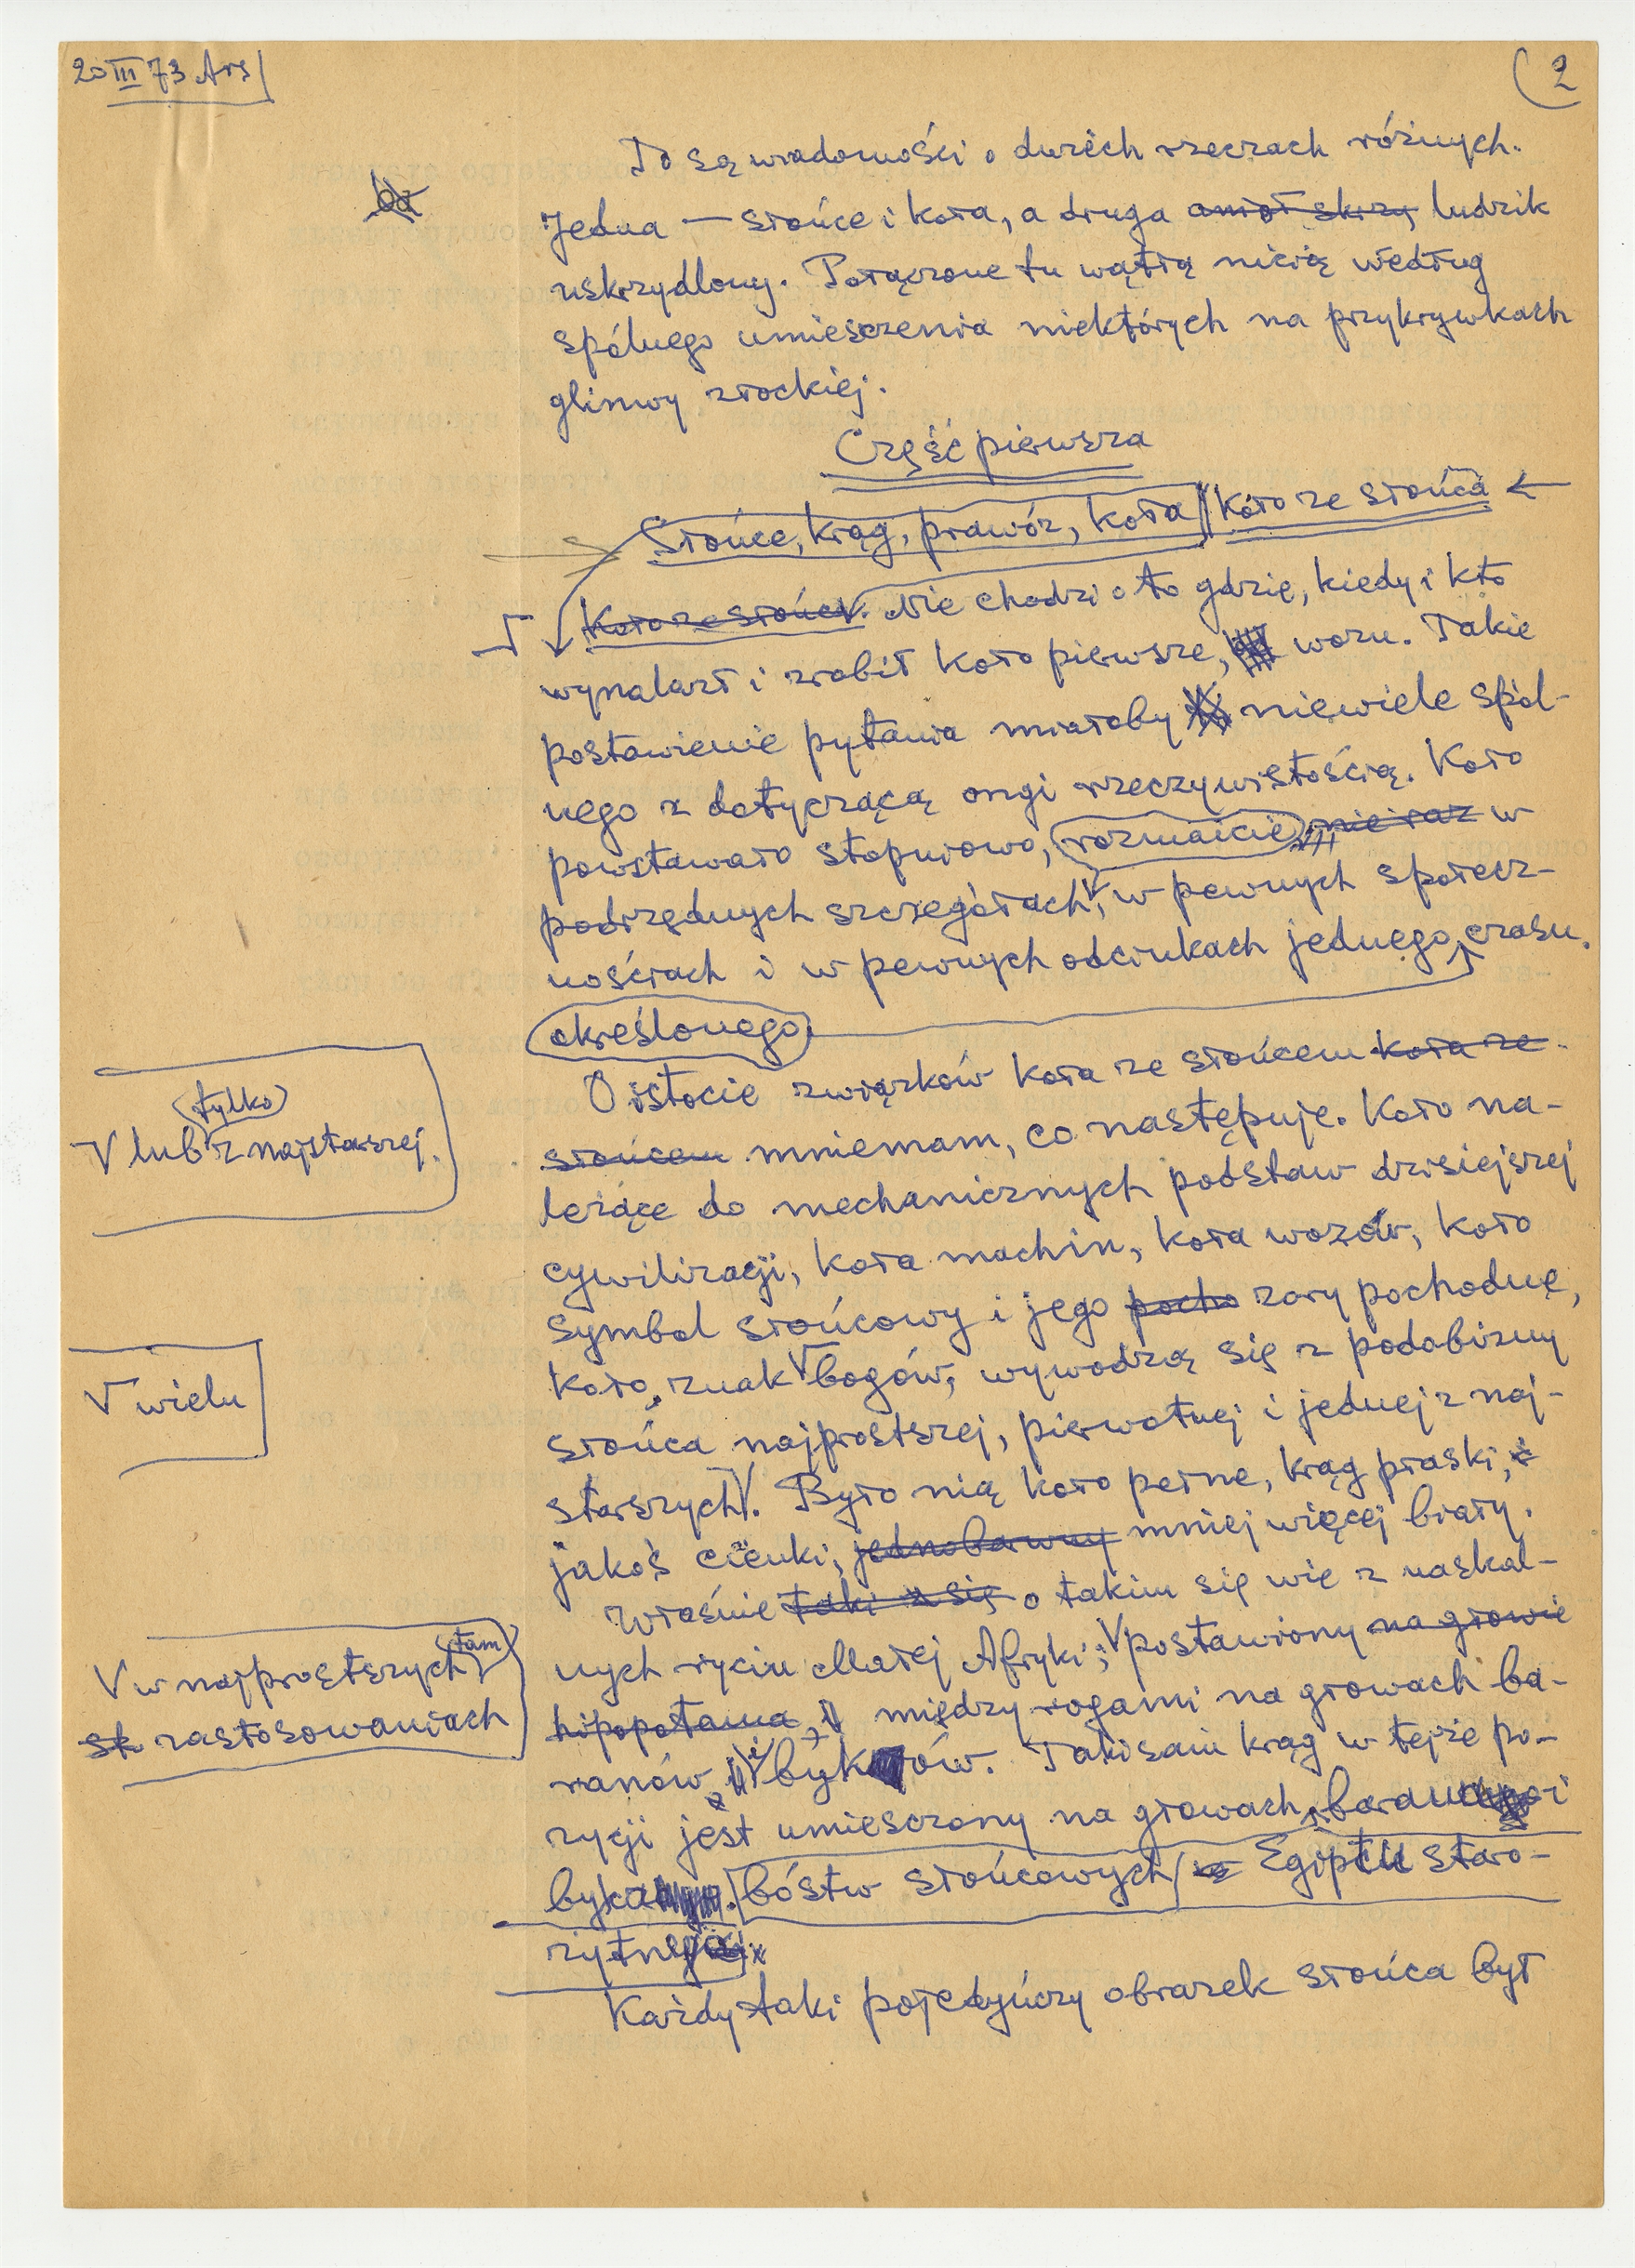 20 III 73 Ars
2
To są wiadomości o dwóch rzeczach różnych.
Jedna — słońce i koła, a druga anioł skrzy, ludzik
uskrzydlony. Połączone tu wątłą nicią według
spólnego umiesczenia niektórych na przykrywkach
glinwy złockiej.
Część pierwsza
Słońce, krąg, prawóz, koła Koło ze słońca
Koło ze słońca. Nie chodzi o to gdzie, kiedy i kto
wynalazł i zrobił koło pierwsze, wozu. Takie
postawienie pytania miałoby niewiele spól-
nego z dotyczącą ongi rzeczywistością. Koło
powstawało stopniowo, rozmaicie nie raz w
podrzędnych szczegółach, w pewnych społecz-
nościach i w pewnych odcinkach jednego czasu.
określonego
O istocie związków koła ze słońcem koła ze
słońcem mniemam, co następuje. Koło na-
leżące do mechanicznych podstaw dzisiejszej
cywilizacji, koła machin, koła wozów, koło
symbol słońcowy i jego pocho zary pochodne,
koło, znak V bogów, wywodzą się z podobizny
słońca najprostszej, pierwotnej i jednej z naj-
starszych V. Było nią koło pełne, krąg płaski, i
jakoś cienki, jednobarwny mniej więcej biały.
Właśnie taki z się o takim się wie z naskal-
nych rycin Małej Afryki; V postawiony na głowie
hipopotama, i między rogami na głowach ba-
ranów i byków. Taki sam krąg w tejże po-
zycji jest umiesczony na głowach barani
byka bóstw słońcowych w Egiptu staro-
żytne
Każdy taki pojedyńczy obrazek słońca był
tylko
V lub z najstarszej.
V wielu
V w najprostszych tam
sk zastosowaniach